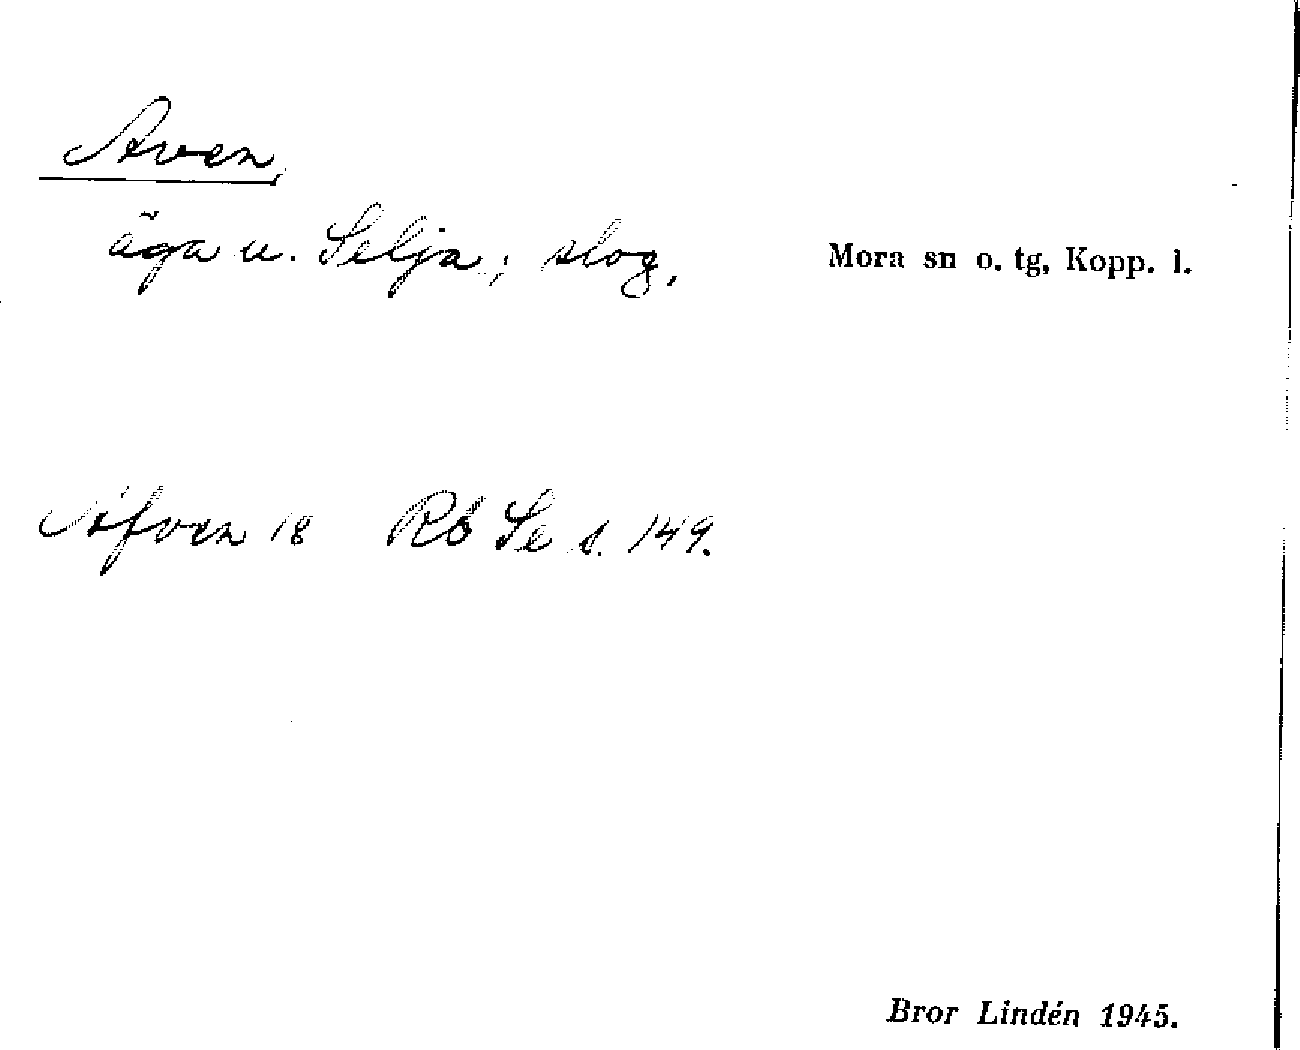 Aven,
äga u. Selja; slog,
Mora sn o. tg, Kopp. l.
Afven 18 Rö Se s. 149.
Bror Lindén 1945.